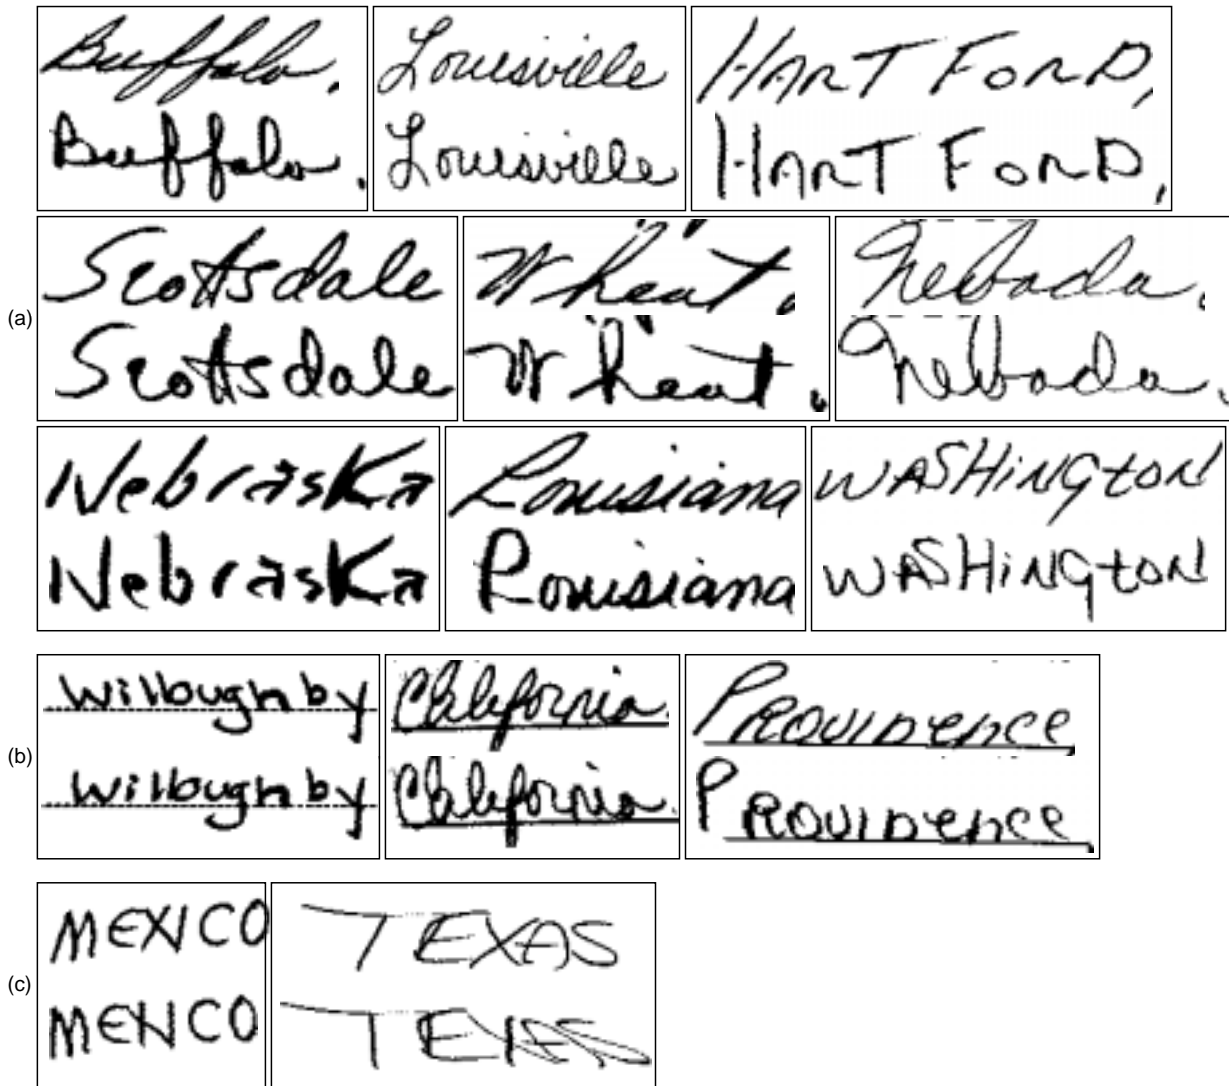 Buffalo, Louisville HART FORD,
Buffalo. Louisville HART FORD,
(a)
Scottsdale Wheat. Nevada.
Scottsdale Wheat. Nevada.
NebrasKa Louisiana WASHiNGtON
NebrasKa Louisiana WASHiNGtON
(b)
Wilbughby California. PROVIDence
Wilbughby California. PROVIDence
(c)
MEXICO TEXAS
MEXICO TEXAS